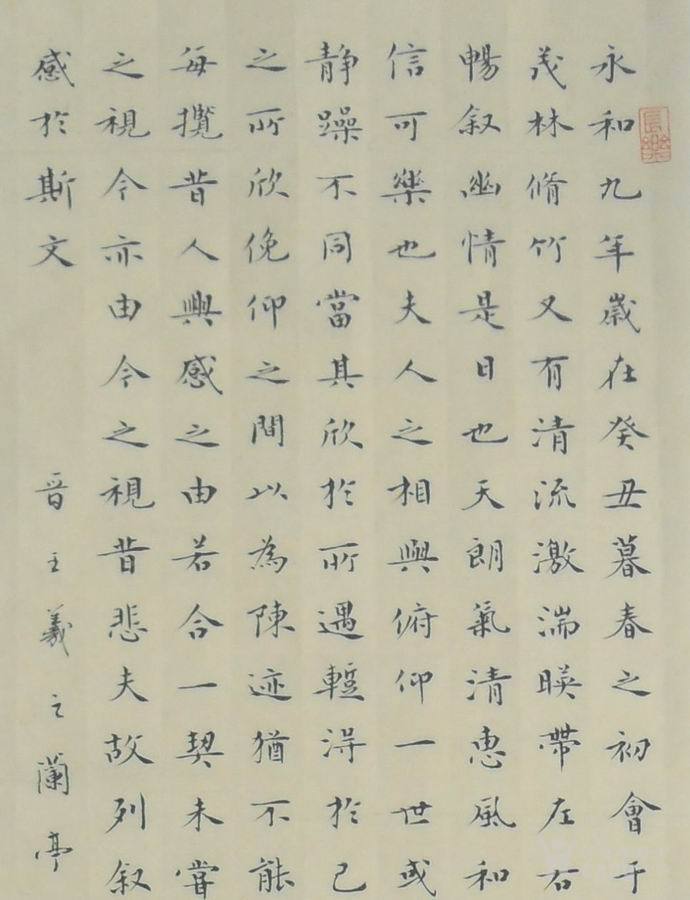 永和九年歲在癸丑暮春之初會于
茂林脩竹又有清流激湍暎帶左右
暢叙幽情是日也天朗氣清惠風和
信可樂也夫人之相與俯仰一世或
静躁不同當其欣於所遇蹔得於己
之所欣俛仰之間以為陳迹猶不能
每攬昔人興感之由若合一契未嘗
之視今亦由今之視昔悲夫故列叙
感於斯文
晉王羲之蘭亭
長樂